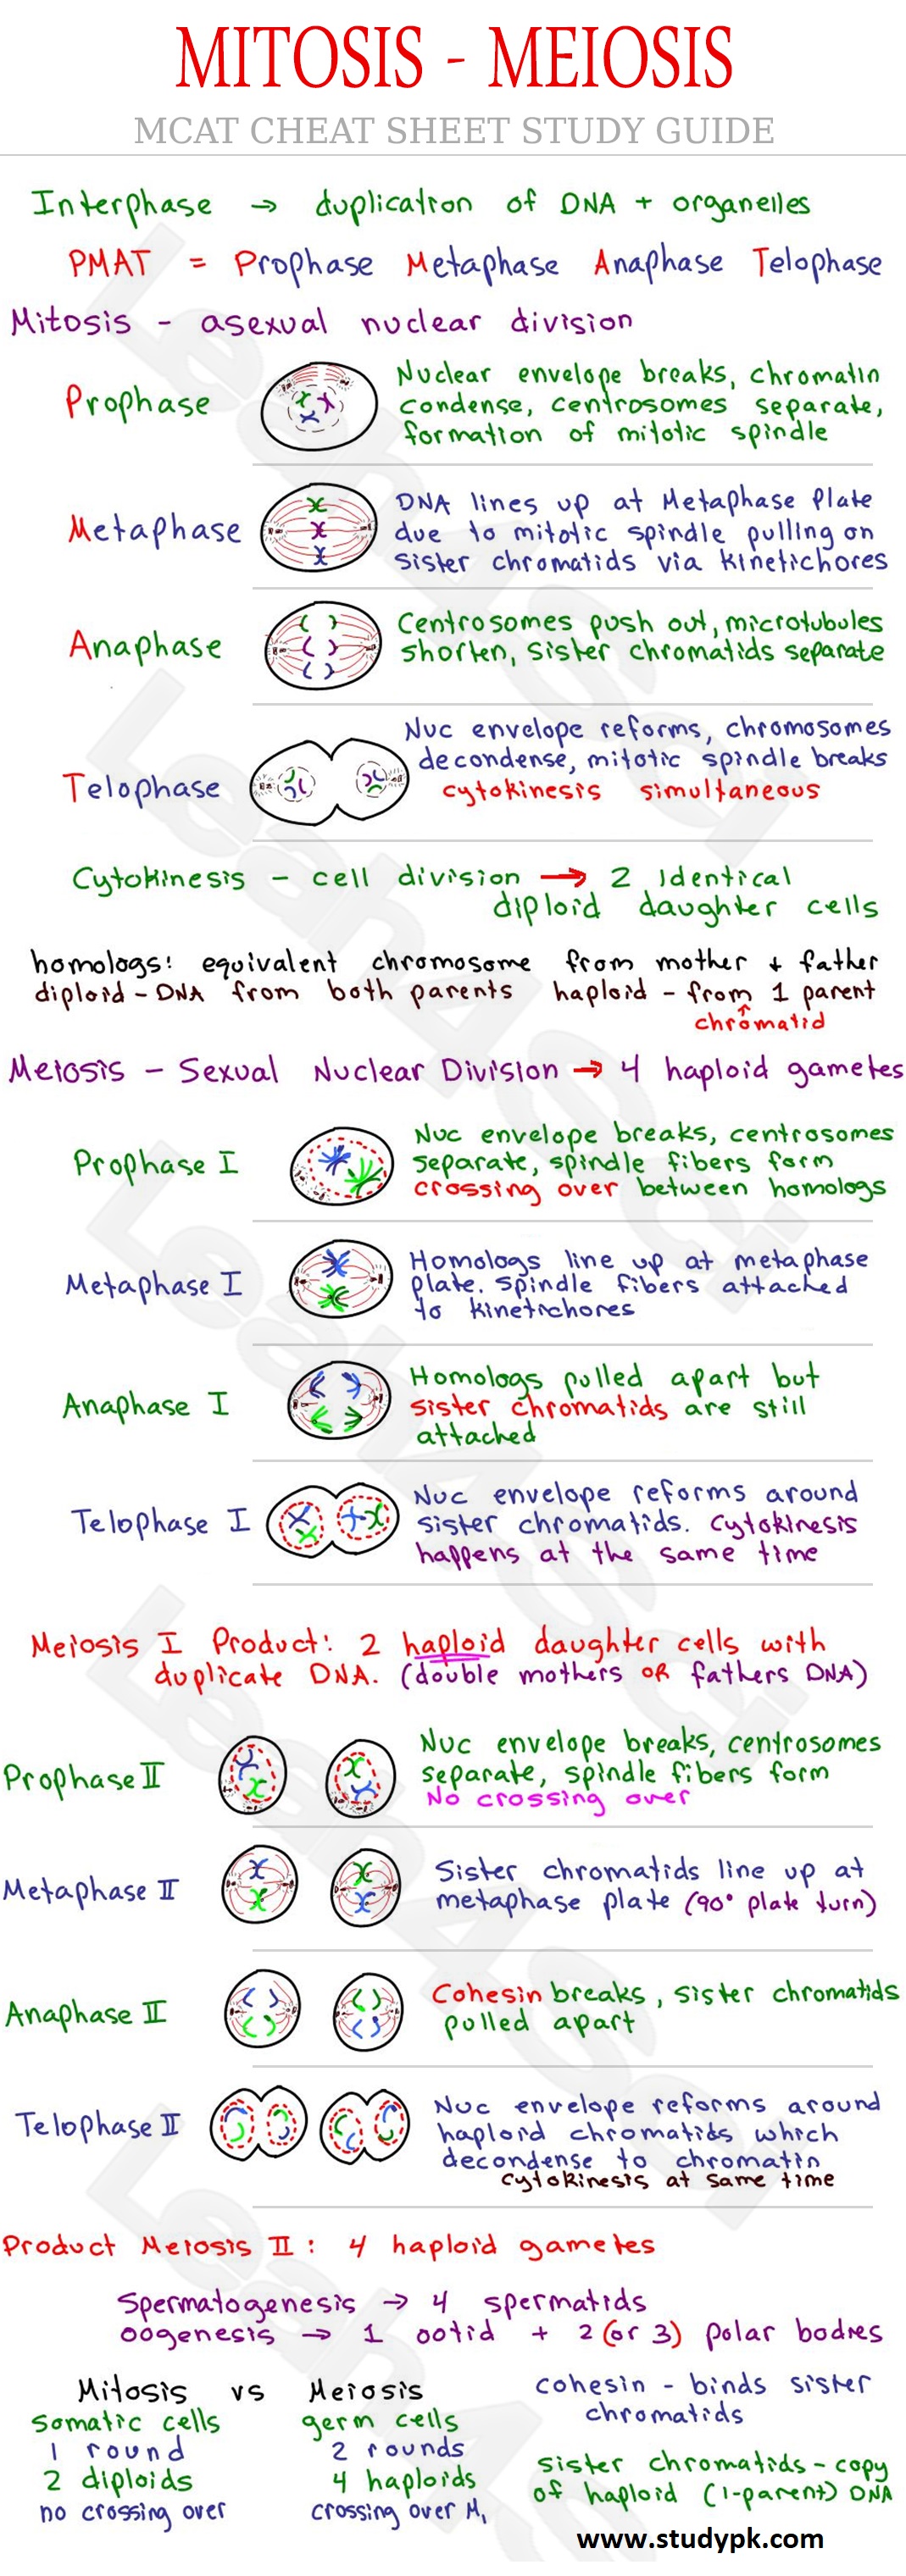 MITOSIS - MEIOSIS
MCAT CHEAT SHEET STUDY GUIDE
Interphase → duplication of DNA + organelles
PMAT = Prophase Metaphase Anaphase Telophase
Mitosis - asexual nuclear division
Prophase
Nuclear envelope breaks, chromatin
condense, centrosomes separate,
formation of mitotic spindle
Metaphase
DNA lines up at Metaphase Plate
due to mitotic spindle pulling on
sister chromatids via kinetichores
Anaphase
Centrosomes push out, microtubules
shorten, sister chromatids separate
Telophase
Nuc envelope reforms, chromosomes
decondense, mitotic spindle breaks
cytokinesis simultaneous
Cytokinesis - cell division → 2 identical
diploid daughter cells
homologs: equivalent chromosome from mother + father
diploid - DNA from both parents haploid - from 1 parent
chromatid
Meiosis - Sexual Nuclear Division → 4 haploid gametes
Prophase I
Nuc envelope breaks, centrosomes
separate, spindle fibers form
crossing over between homologs
Metaphase I
Homologs line up at metaphase
plate. spindle fibers attached
to kinetichores
Anaphase I
Homologs pulled apart but
sister chromatids are still
attached
Telophase I
Nuc envelope reforms around
sister chromatids. Cytokinesis
happens at the same time
Meiosis I Product: 2 haploid daughter cells with
duplicate DNA. (double mothers OR fathers DNA)
Prophase II
Nuc envelope breaks, centrosomes
separate, spindle fibers form
No crossing over
Metaphase II
Sister chromatids line up at
metaphase plate (90° plate turn)
Anaphase II
Cohesin breaks, sister chromatids
pulled apart
Telophase II
Nuc envelope reforms around
haploid chromatids which
decondense to chromatin
cytokinesis at same time
Product Meiosis II: 4 haploid gametes
Spermatogenesis → 4 spermatids
oogenesis → 1 ootid + 2 (or 3) polar bodies
Mitosis vs Meiosis
somatic cells germ cells
1 round 2 rounds
2 diploids 4 haploids
no crossing over crossing over M1
cohesin - binds sister
chromatids
sister chromatids - copy
of haploid (1-parent) DNA
www.studypk.com
Leah4Sci
Leah4Sci
Leah4Sci
Leah4Sci
Leah4s